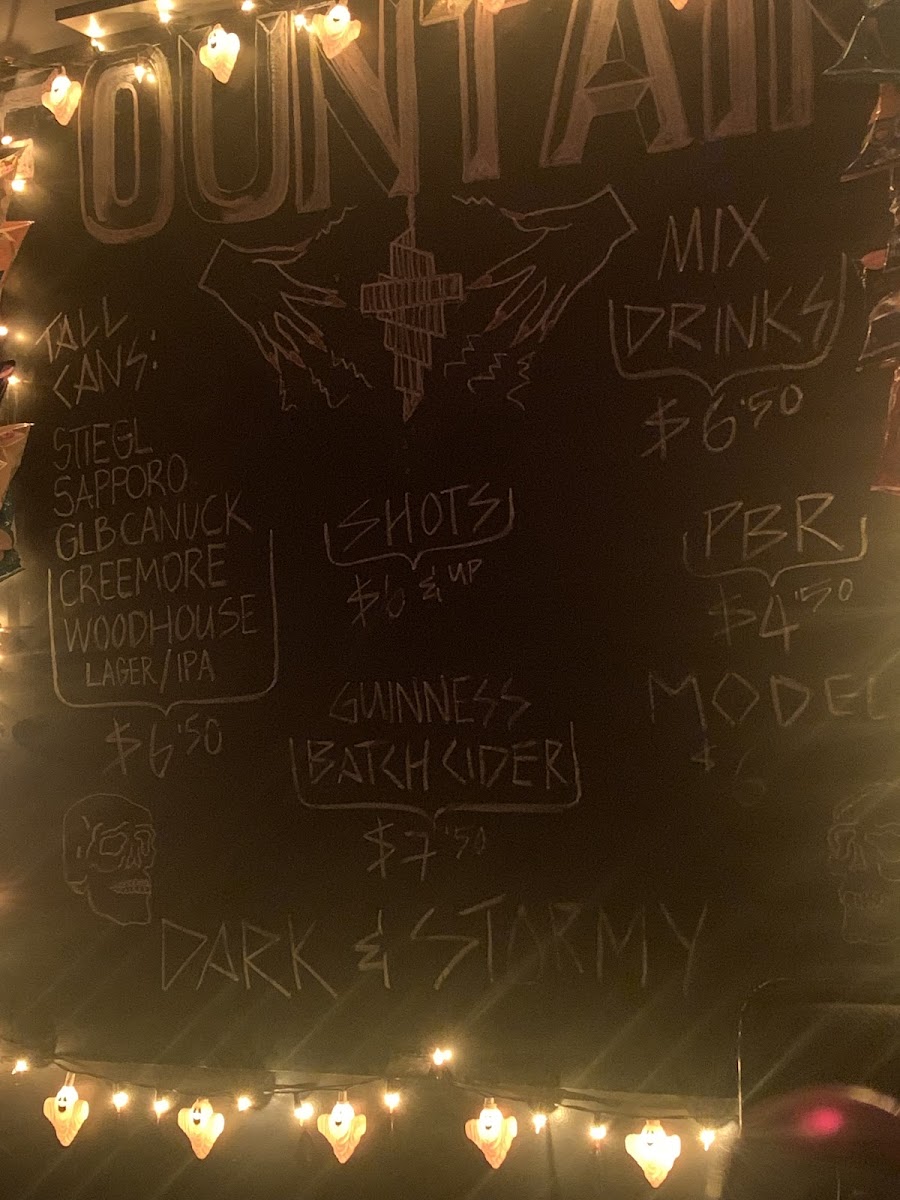 OUNTAI
TALL
CANS:
STIEGL
SAPPORO
GLB CANUCK
CREEMORE
WOODHOUSE
LAGER/IPA
$6.50
SHOTS
$6 & UP
GUINNESS
BATCH CIDER
$7.50
MIX
DRINKS
$6.50
PBR
$4.50
MODEL
$6
DARK & STORMY